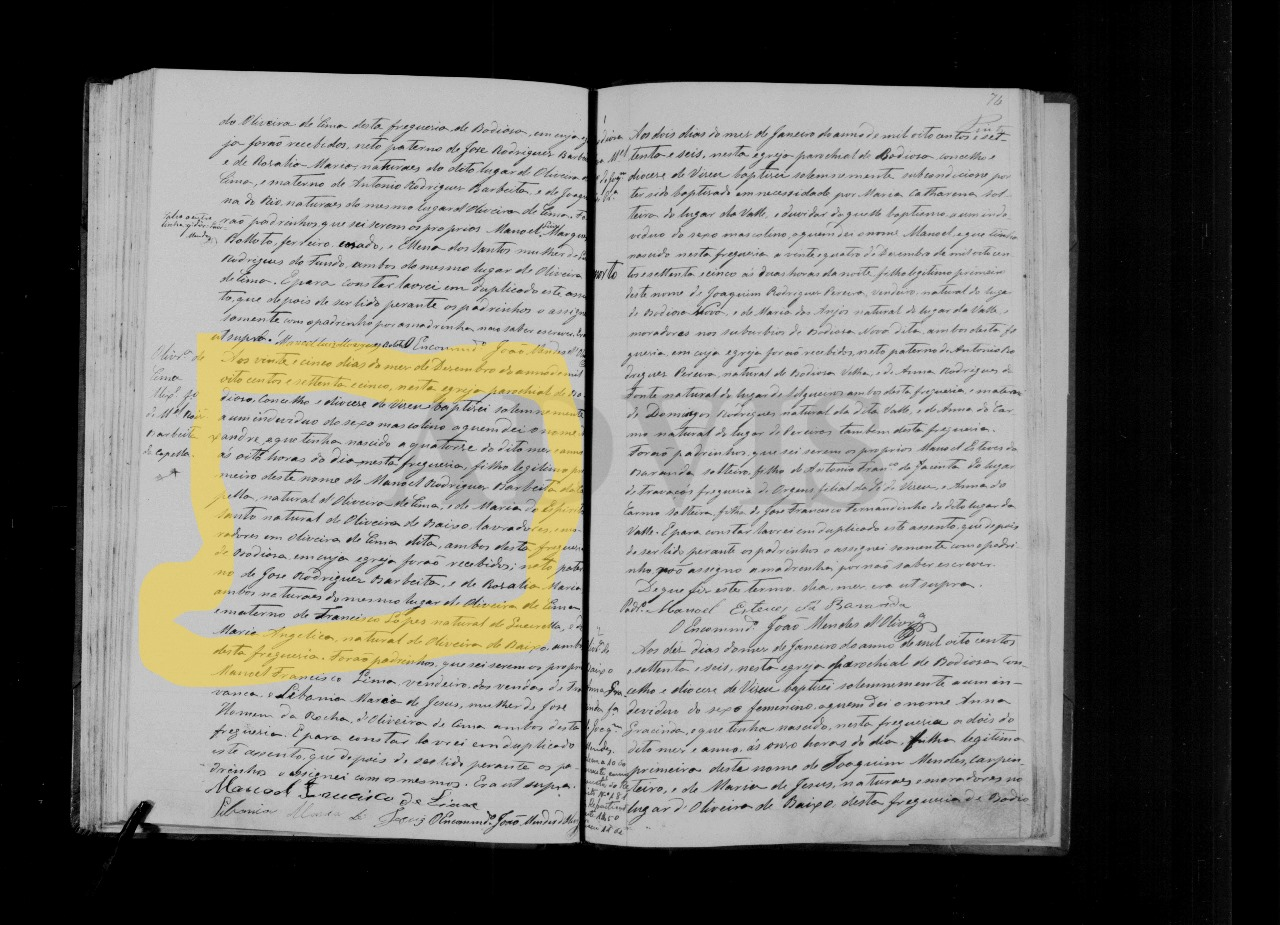 do Oliveira de Cima desta freguesia de Bodiosa, em cuja egre
ja forão recebidos, neto paterno de Jose Rodrigues Barbei
e de Rosalia Maria, naturaes do dito lugar de Oliveira de
Cima, e materno de Antonio Rodrigues Barbeita, e de Joaqui
na do Rio, naturaes do mesmo lugar d'Oliveira de Cima. Fo
rão padrinhos, que sei serem os proprios Manoel Luiz Marques
Batloto, ferreiro, casado, e Ellena dos Santos mulher de
Rodrigues do Fundo, ambos do mesmo lugar de Oliveira
de Cima. E para constar lavrei em duplicado este assen
to, que depois de ser lido perante os padrinhos o assignei
somente com o padrinho por a madrinha não saber escrever. Era
ut supra. Manoel Luiz Marques O Encommdo João Mendes
Olivra de
Cima
de Mel
Barbeita
da Capella
Aos vinte e cinco dias do mez de Dezembro do anno de mil
oito centos e settenta cinco, nesta egreja parochial de Bo
diosa, Concelho e diocese de Viseu baptizei solemnemente
a um individuo do sexo masculino a quem dei o nome
xandre, e que tinha nascido a quatorze do dito mez e anno
ás oito horas do dia nesta freguesia, filho legitimo pri
meiro deste nome de Manoel Rodrigues Barbeita da Ca
pella, natural d'Oliveira de Cima, e de Maria do Espirito
Santo natural de Oliveira de Baixo, lavradores, e mo
radores em Oliveira de Cima dita, ambos desta freguesia
de Bodiosa, em cuja egreja forão recebidos; neto pater
no de Jose Rodrigues Barbeita, e de Rosalia Maria
ambos naturaes do mesmo lugar de Oliveira de Cima
e materno de Francisco Lopes natural de Queirella, e de
Maria Angelica, natural de Oliveira de Baixo, ambos
desta freguesia. Forão padrinhos, que sei serem os proprios
Manoel Francisco Lima, vendeiro, das vendas de Tra
vanca, e Libania Maria de Jesus, mulher de Jose
Homem da Rocha, d'Oliveira de Cima ambos desta
freguesia. E para constar lavrei em duplicado
este assento, que depois de ser lido perante os pa
drinhos o assignei com os mesmos. Era ut supra.
Manoel Francisco de Lima
Libania Maria de Jesus O Encommdo João Mendes
76
Aos dois dias do mez de Janeiro do anno de mil oito centos e set
tenta e seis, nesta egreja parochial de Bodiosa concelho e
diocese de Viseu baptizei solemnemente subcondicione por
ter sido baptizado em necessidade, por Maria Catharina sol
teira do lugar da Valle, e duvidar daquelle baptismo, a um indi
viduo do sexo masculino, a quem dei o nome Manoel, e que tinha
nascido nesta freguesia a vente e quatro de Dezembro de mil oito cen
tos e settenta e cinco ás duas horas da noite, filho legitimo primeiro
deste nome de Joaquim Rodrigues Pereira, vendeiro, natural do lugar
de Bodiosa Nova, e de Maria dos Anjos natural do lugar da Valle,
moradores nos suburbios de Bodiosa Nova dita, ambos desta fre
guesia, em cuja egreja forão recebidos, neto paterno de Antonio Ro
drigues Pereira, natural de Bodiosa Velha, e de Anna Rodrigues da
Fonte natural do lugar de Silgueiros ambos desta freguesia, e materno
de Domingos Rodrigues natural da dita Valle, e de Anna do Car
mo natural do lugar de Pereiros tambem desta freguesia.
Forão padrinhos, que sei serem os proprios Manoel Esteves da
Baranda solteiro, filho de Antonio Franco de Jacinta do lugar
de Travaços freguesia de Orgens filial da Sé de Viseu, e Anna do
Carmo solteira, filha de Jose Francisco Fernandinho do dito lugar da
Valle. E para constar lavrei em duplicado este assento, que depois
de ser lido perante os padrinhos o assignei somente com o padri
nho, não assigno a madrinha por não saber escrever.
De que fiz este termo. dia, mez, era ut supra.
Padro Manoel Esteves da Baranda
O Encommdo João Mendes d'Olivra
Aos dez dias do mez de Janeiro do anno de mil oito centos
e settenta e seis, nesta egreja parochial de Bodiosa, con
celho e diocese de Viseu baptizei solemnemente a um in
deviduo do sexo femenino, a quem dei o nome Anna
Gracinda, e que tinha nascido, nesta freguesia a dois do
dito mez e anno, ás onze horas do dia, filha legitima
primeira desta nome de Joaquim Mendes, Carpin
teiro, e de Maria de Jesus, naturaes e moradores no
lugar d'Oliveira de Baixo, desta freguesia de Bodio